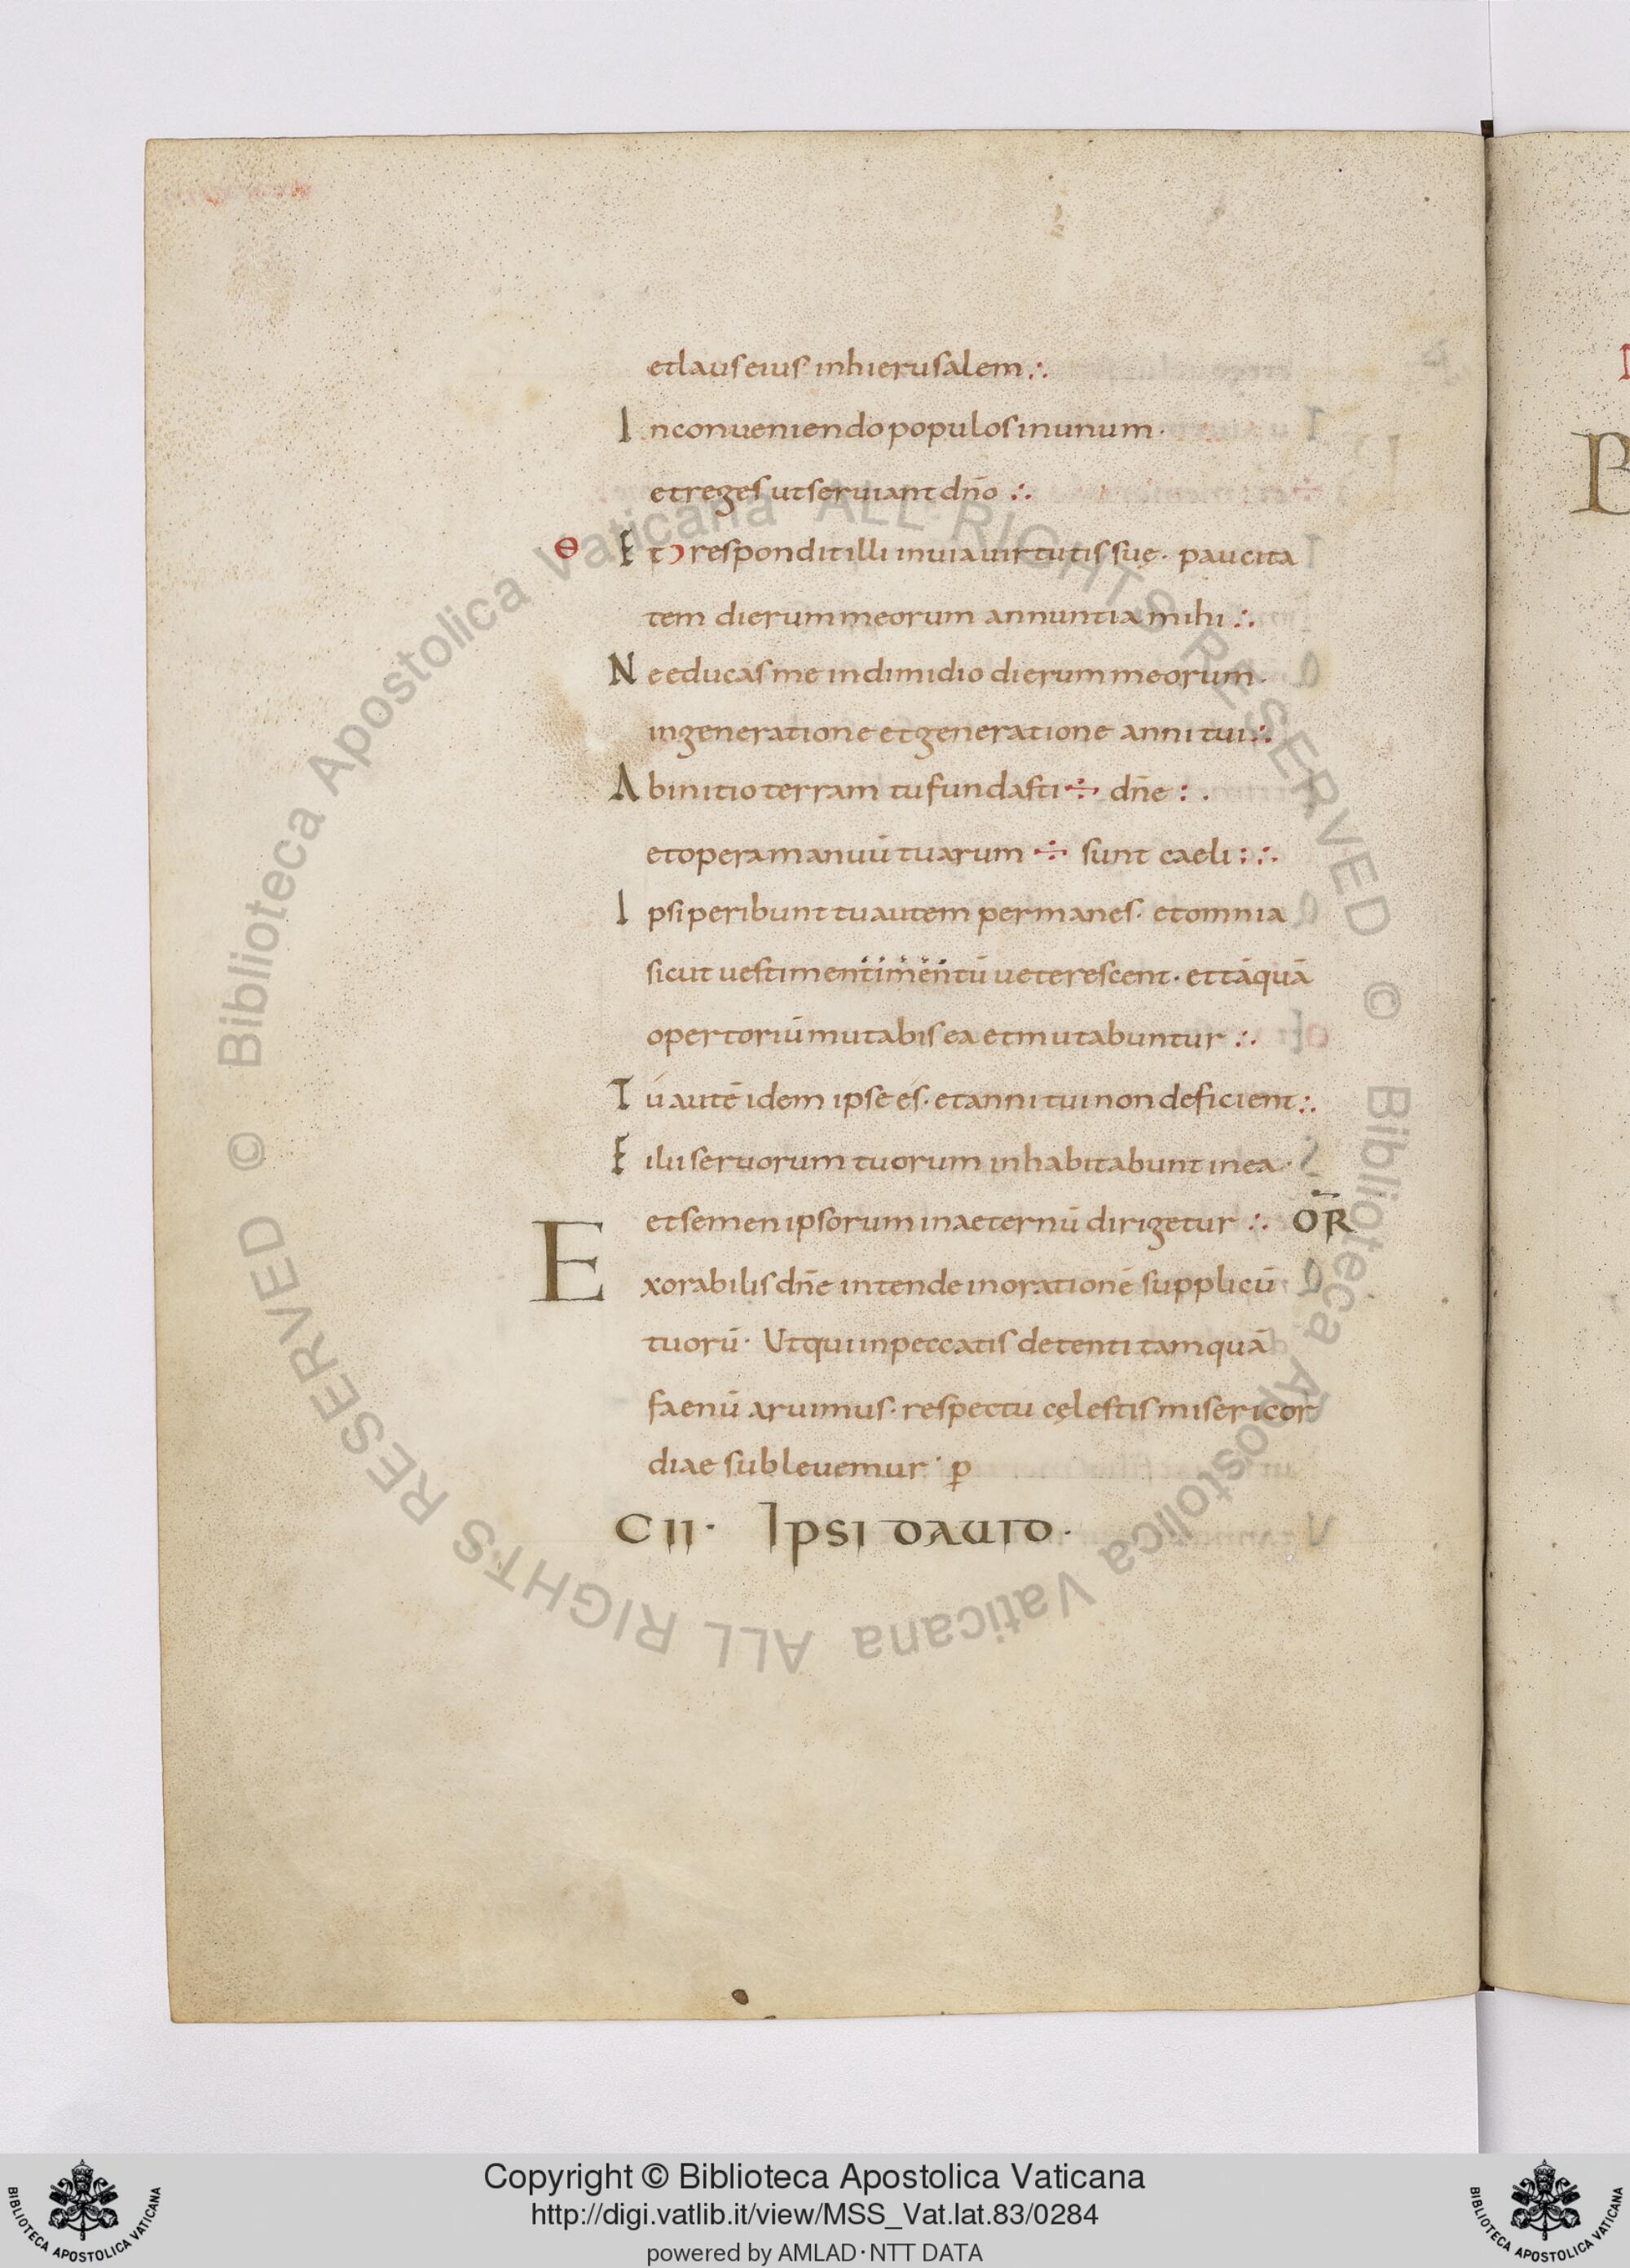 et laus eius in hierusalem ∴
In conueniendo populos in unum ·
et reges ut seruiant dn̄o ∴
Θ Et Ɔ respondit illi in uia uirtutis suę · paucita
tem dierum meorum annuntia mihi ∴
Ne educas me in dimidio dierum meorum ·
in generatione et generatione anni tui ∴
Ab initio terram tu fundasti ÷ dn̄e : .
et opera manuū tuarum ÷ sunt caeli : ∴
Ipsi peribunt tu autem permanes · et omnia
sicut uestimentimentū ueterescent · et tāquā
opertoriū mutabis ea et mutabuntur ∴
Tú autē idem ipse és · et anni tui non deficient ∴
Filii seruorum tuorum inhabitabunt in ea ·
et semen ipsorum in aeternū dirigetur ∴ OR̄
Exorabilis dn̄e intende in orationē supplicū
tuorū · Ut qui in peccatis detenti tamquā
faenū aruimus · respectu cęlestis misericor
diae subleuemur · p
CII · Ipsi dauid ·
© Biblioteca Apostolica Vaticana ALL RIGHTS RESERVED © Biblioteca Apostolica Vaticana ALL RIGHTS RESERVED
Copyright © Biblioteca Apostolica Vaticana
http://digi.vatlib.it/view/MSS_Vat.lat.83/0284
powered by AMLAD·NTT DATA
BIBLIOTECA APOSTOLICA VATICANA
BIBLIOTECA APOSTOLICA VATICANA